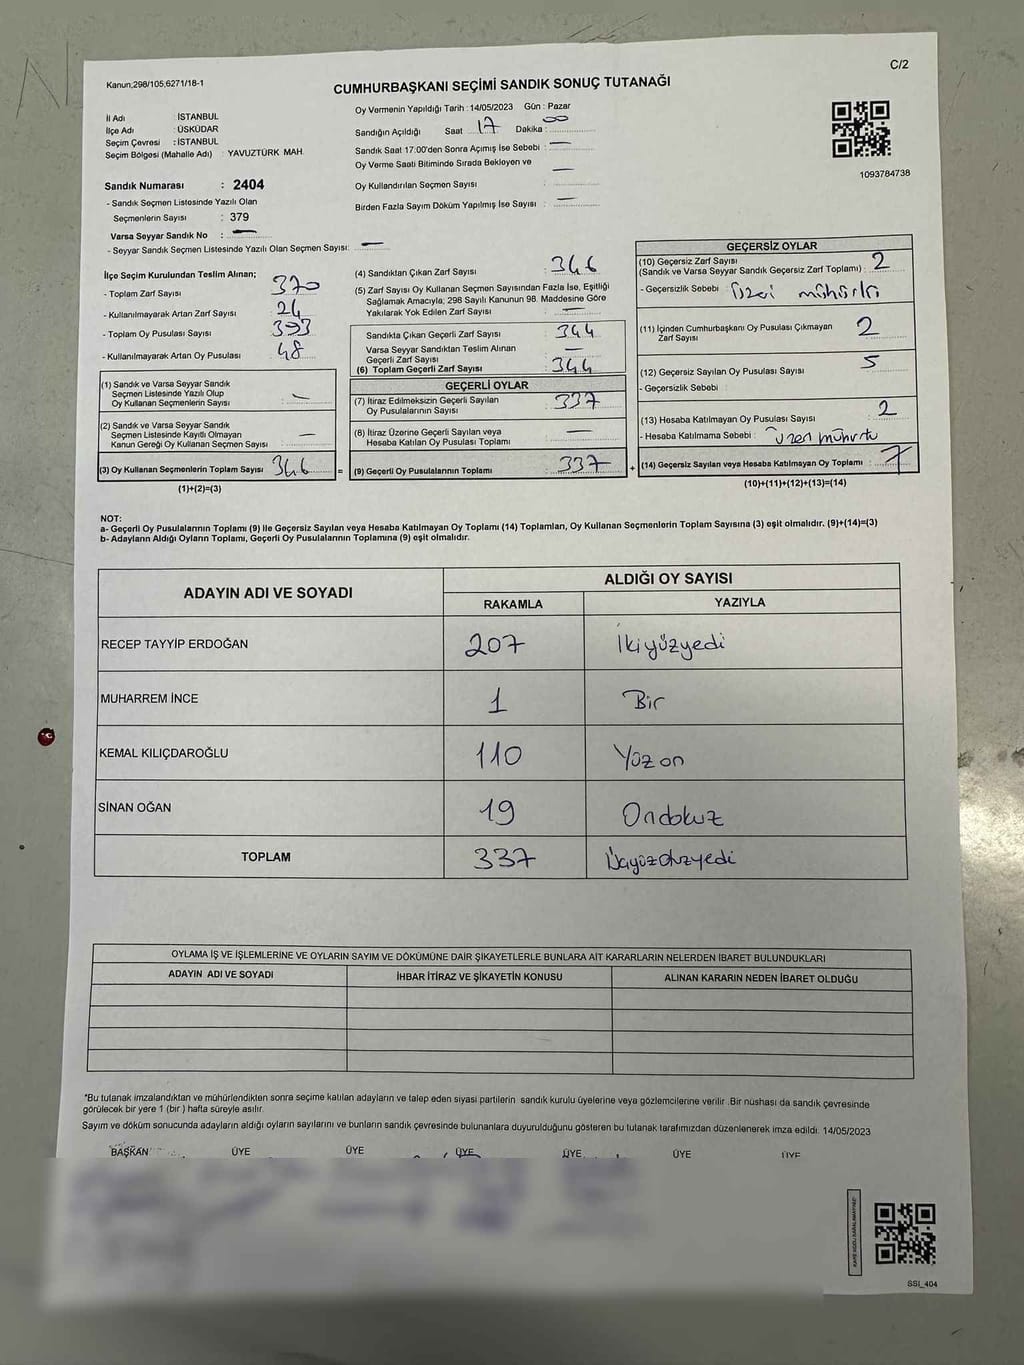 Kanun:298/105;6271/18-1
C/2
CUMHURBAŞKANI SEÇİMİ SANDIK SONUÇ TUTANAĞI
1093784738
İl Adı : İSTANBUL
İlçe Adı : ÜSKÜDAR
Seçim Çevresi : İSTANBUL
Seçim Bölgesi (Mahalle Adı) : YAVUZTÜRK MAH.
Sandık Numarası : 2404
- Sandık Seçmen Listesinde Yazılı Olan
Seçmenlerin Sayısı : 379
Varsa Seyyar Sandık No : —
- Seyyar Sandık Seçmen Listesinde Yazılı Olan Seçmen Sayısı: —
Oy Vermenin Yapıldığı Tarih : 14/05/2023 Gün : Pazar
Sandığın Açıldığı Saat 17 Dakika : 00
Sandık Saat 17:00'den Sonra Açımış İse Sebebi : —
Oy Verme Saati Bitiminde Sırada Bekleyen ve —
Oy Kullandırılan Seçmen Sayısı :
Birden Fazla Sayım Döküm Yapılmış İse Sayısı : —
İlçe Seçim Kurulundan Teslim Alınan;
- Toplam Zarf Sayısı : 370
- Kullanılmayarak Artan Zarf Sayısı : 24
- Toplam Oy Pusulası Sayısı : 393
- Kullanılmayarak Artan Oy Pusulası : 48
(1) Sandık ve Varsa Seyyar Sandık
Seçmen Listesinde Yazılı Olup
Oy Kullanan Seçmenlerin Sayısı : —
(2) Sandık ve Varsa Seyyar Sandık
Seçmen Listesinde Kayıtlı Olmayan
Kanun Gereği Oy Kullanan Seçmen Sayısı : —
(3) Oy Kullanan Seçmenlerin Toplam Sayısı : 346
(1)+(2)=(3)
(4) Sandıktan Çıkan Zarf Sayısı : 346
(5) Zarf Sayısı Oy Kullanan Seçmen Sayısından Fazla İse, Eşitliği
Sağlamak Amacıyla; 298 Sayılı Kanunun 98. Maddesine Göre
Yakılarak Yok Edilen Zarf Sayısı : —
Sandıkta Çıkan Geçerli Zarf Sayısı : 344
Varsa Seyyar Sandıktan Teslim Alınan
Geçerli Zarf Sayısı : —
(6) Toplam Geçerli Zarf Sayısı : 344
GEÇERLİ OYLAR
(7) İtiraz Edilmeksizin Geçerli Sayılan
Oy Pusulalarının Sayısı : 337
(8) İtiraz Üzerine Geçerli Sayılan veya
Hesaba Katılan Oy Pusulası Toplamı : —
= (9) Geçerli Oy Pusulalarının Toplamı : 337 +
GEÇERSİZ OYLAR
(10) Geçersiz Zarf Sayısı
(Sandık ve Varsa Seyyar Sandık Geçersiz Zarf Toplamı) : 2
- Geçersizlik Sebebi : üzeri mühürlü
(11) İçinden Cumhurbaşkanı Oy Pusulası Çıkmayan
Zarf Sayısı : 2
(12) Geçersiz Sayılan Oy Pusulası Sayısı : 5
- Geçersizlik Sebebi :
(13) Hesaba Katılmayan Oy Pusulası Sayısı : 2
- Hesaba Katılmama Sebebi : üzeri mühürlü
(14) Geçersiz Sayılan veya Hesaba Katılmayan Oy Toplamı : 7
(10)+(11)+(12)+(13)=(14)
NOT:
a- Geçerli Oy Pusulalarının Toplamı (9) ile Geçersiz Sayılan veya Hesaba Katılmayan Oy Toplamı (14) Toplamları, Oy Kullanan Seçmenlerin Toplam Sayısına (3) eşit olmalıdır. (9)+(14)=(3)
b- Adayların Aldığı Oyların Toplamı, Geçerli Oy Pusulalarının Toplamına (9) eşit olmalıdır.
ADAYIN ADI VE SOYADI
ALDIĞI OY SAYISI
RAKAMLA YAZIYLA
RECEP TAYYİP ERDOĞAN 207 İkiyüzyedi
MUHARREM İNCE 1 Bir
KEMAL KILIÇDAROĞLU 110 Yüz on
SİNAN OĞAN 19 Ondokuz
TOPLAM 337 Üçyüzotuzyedi
OYLAMA İŞ VE İŞLEMLERİNE VE OYLARIN SAYIM VE DÖKÜMÜNE DAİR ŞİKAYETLERLE BUNLARA AİT KARARLARIN NELERDEN İBARET BULUNDUKLARI
ADAYIN ADI VE SOYADI İHBAR İTİRAZ VE ŞİKAYETİN KONUSU ALINAN KARARIN NEDEN İBARET OLDUĞU
*Bu tutanak imzalandıktan ve mühürlendikten sonra seçime katılan adayların ve talep eden siyasi partilerin sandık kurulu üyelerine veya gözlemcilerine verilir .Bir nüshası da sandık çevresinde
görülecek bir yere 1 (bir ) hafta süreyle asılır.
Sayım ve döküm sonucunda adayların aldığı oyların sayılarını ve bunların sandık çevresinde bulunanlara duyurulduğunu gösteren bu tutanak tarafımızdan düzenlenerek imza edildi. 14/05/2023
BAŞKAN ÜYE ÜYE ÜYE ÜYE ÜYE ÜYE
SSI_404